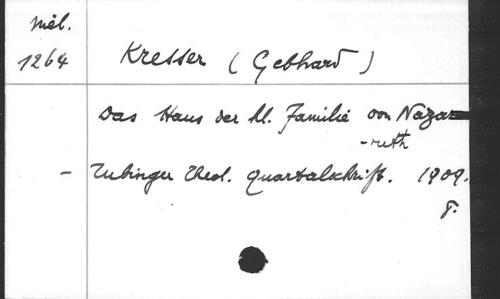 Mél.
1264
Kresser (Gebhard)
Das Haus der hl. Familie von Naza=
-reth
- Tubinger Theol. Quartalschrift. 1909.
8.